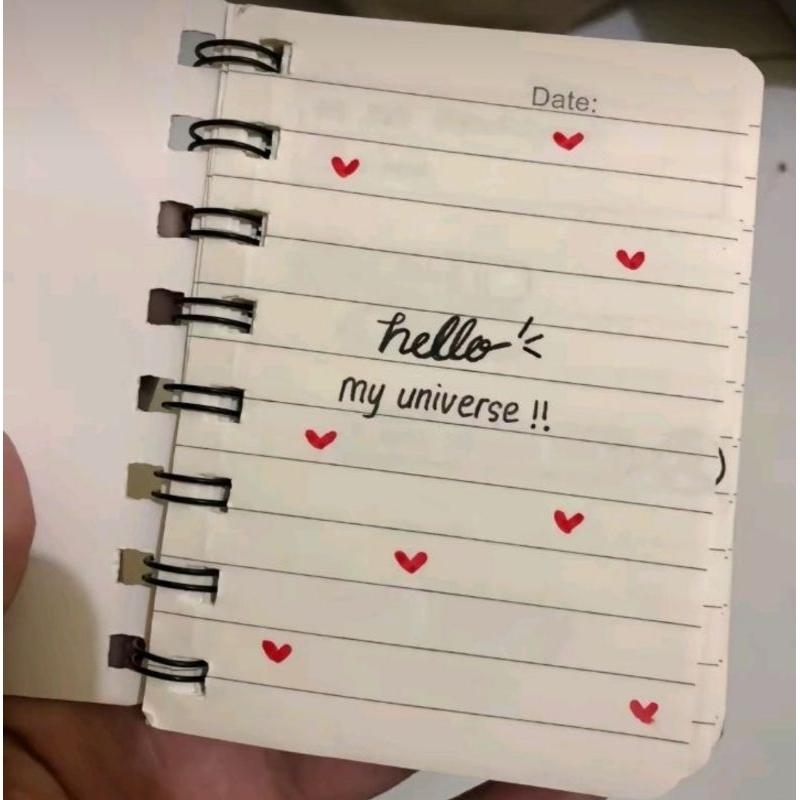 Date:
hello
my universe !!